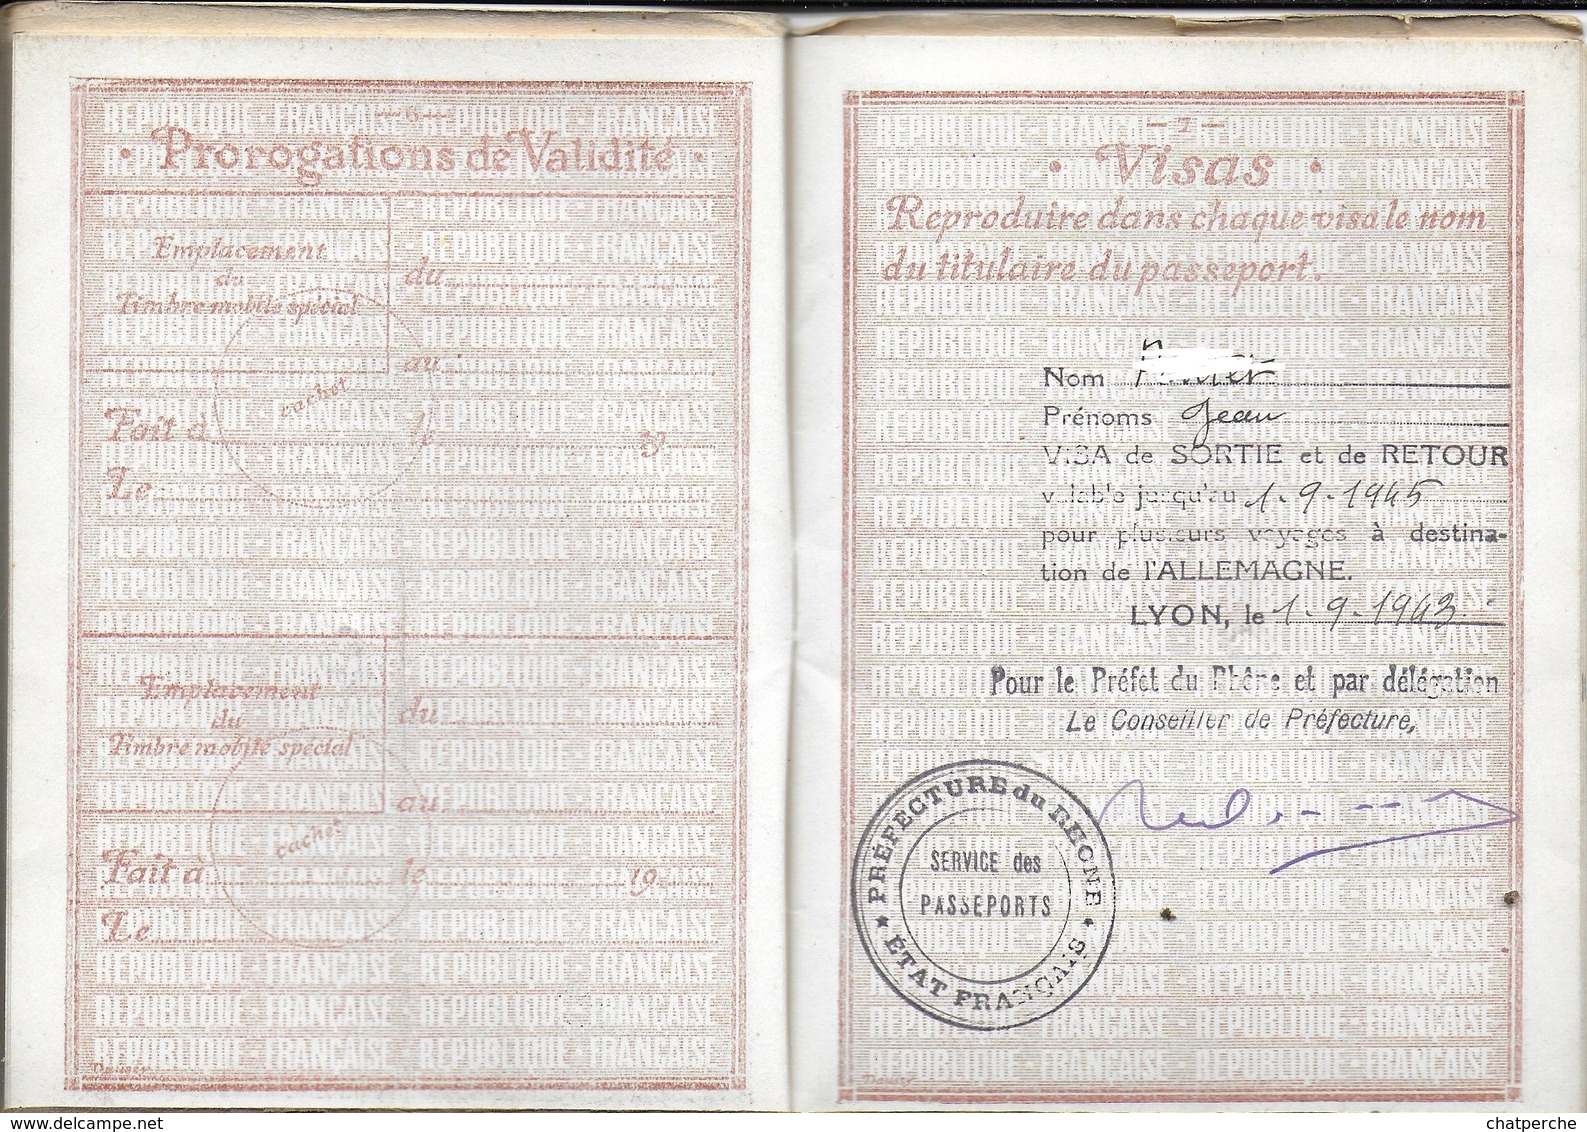 —6—
· Prorogations de Validité ·
Emplacement
du
Timbre mobile spécial
cachet
du
au
Fait à le 19
Le
Emplacement
du
Timbre mobile spécial
cachet
du
au
Fait à le 19
Le
—7—
· Visas ·
Reproduire dans chaque visa le nom
du titulaire du passeport.
Nom
Prénoms Jean
VISA de SORTIE et de RETOUR
valable jusqu'au 1-9-1945
pour plusieurs voyages à destina-
tion de l'ALLEMAGNE.
LYON, le 1-9-1943
Pour le Préfet du Rhône et par délégation
Le Conseiller de Préfecture,
PRÉFECTURE du RHONE
SERVICE des
PASSEPORTS
★ ÉTAT FRANÇAIS ★
RÉPUBLIQUE - FRANÇAISE - RÉPUBLIQUE - FRANÇAISE
delcampe.net
chatperche